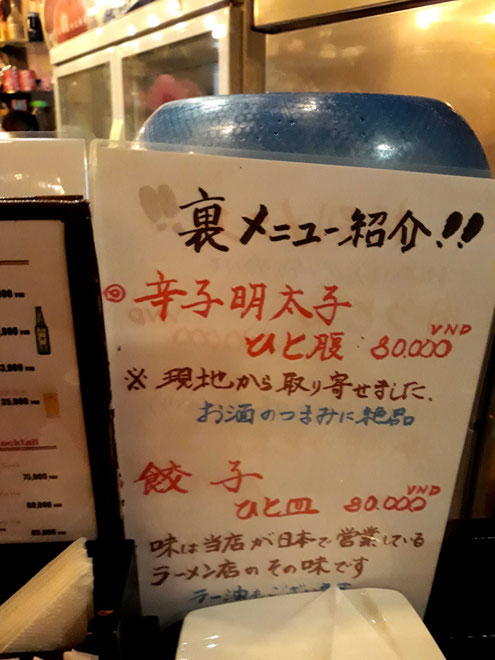 裏メニュー紹介!!
◎辛子明太子
ひと腹 80.000 VND
※現地から取り寄せました.
お酒のつまみに絶品
餃子
ひと皿 80.000 VND
味は当店が日本で営業している
ラーメン店のその味です
ラー油
35,000 VND
Cocktail
75,000 VND